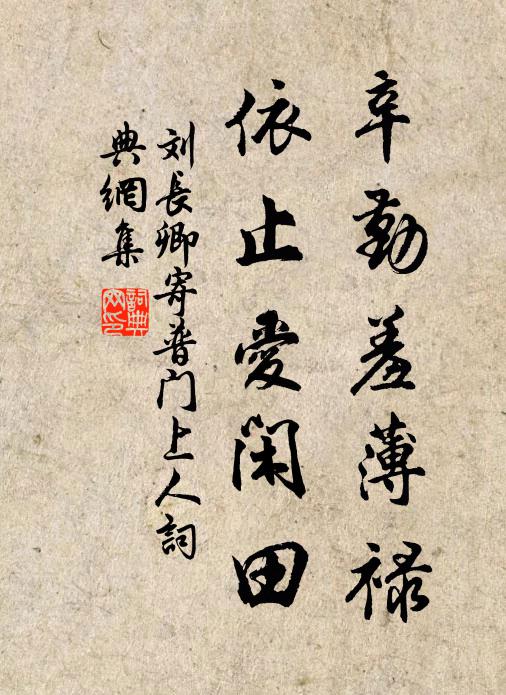 辛勤羞薄禄
依止爱闲田
刘長卿寄普门上人詞
典網集
詞典网印